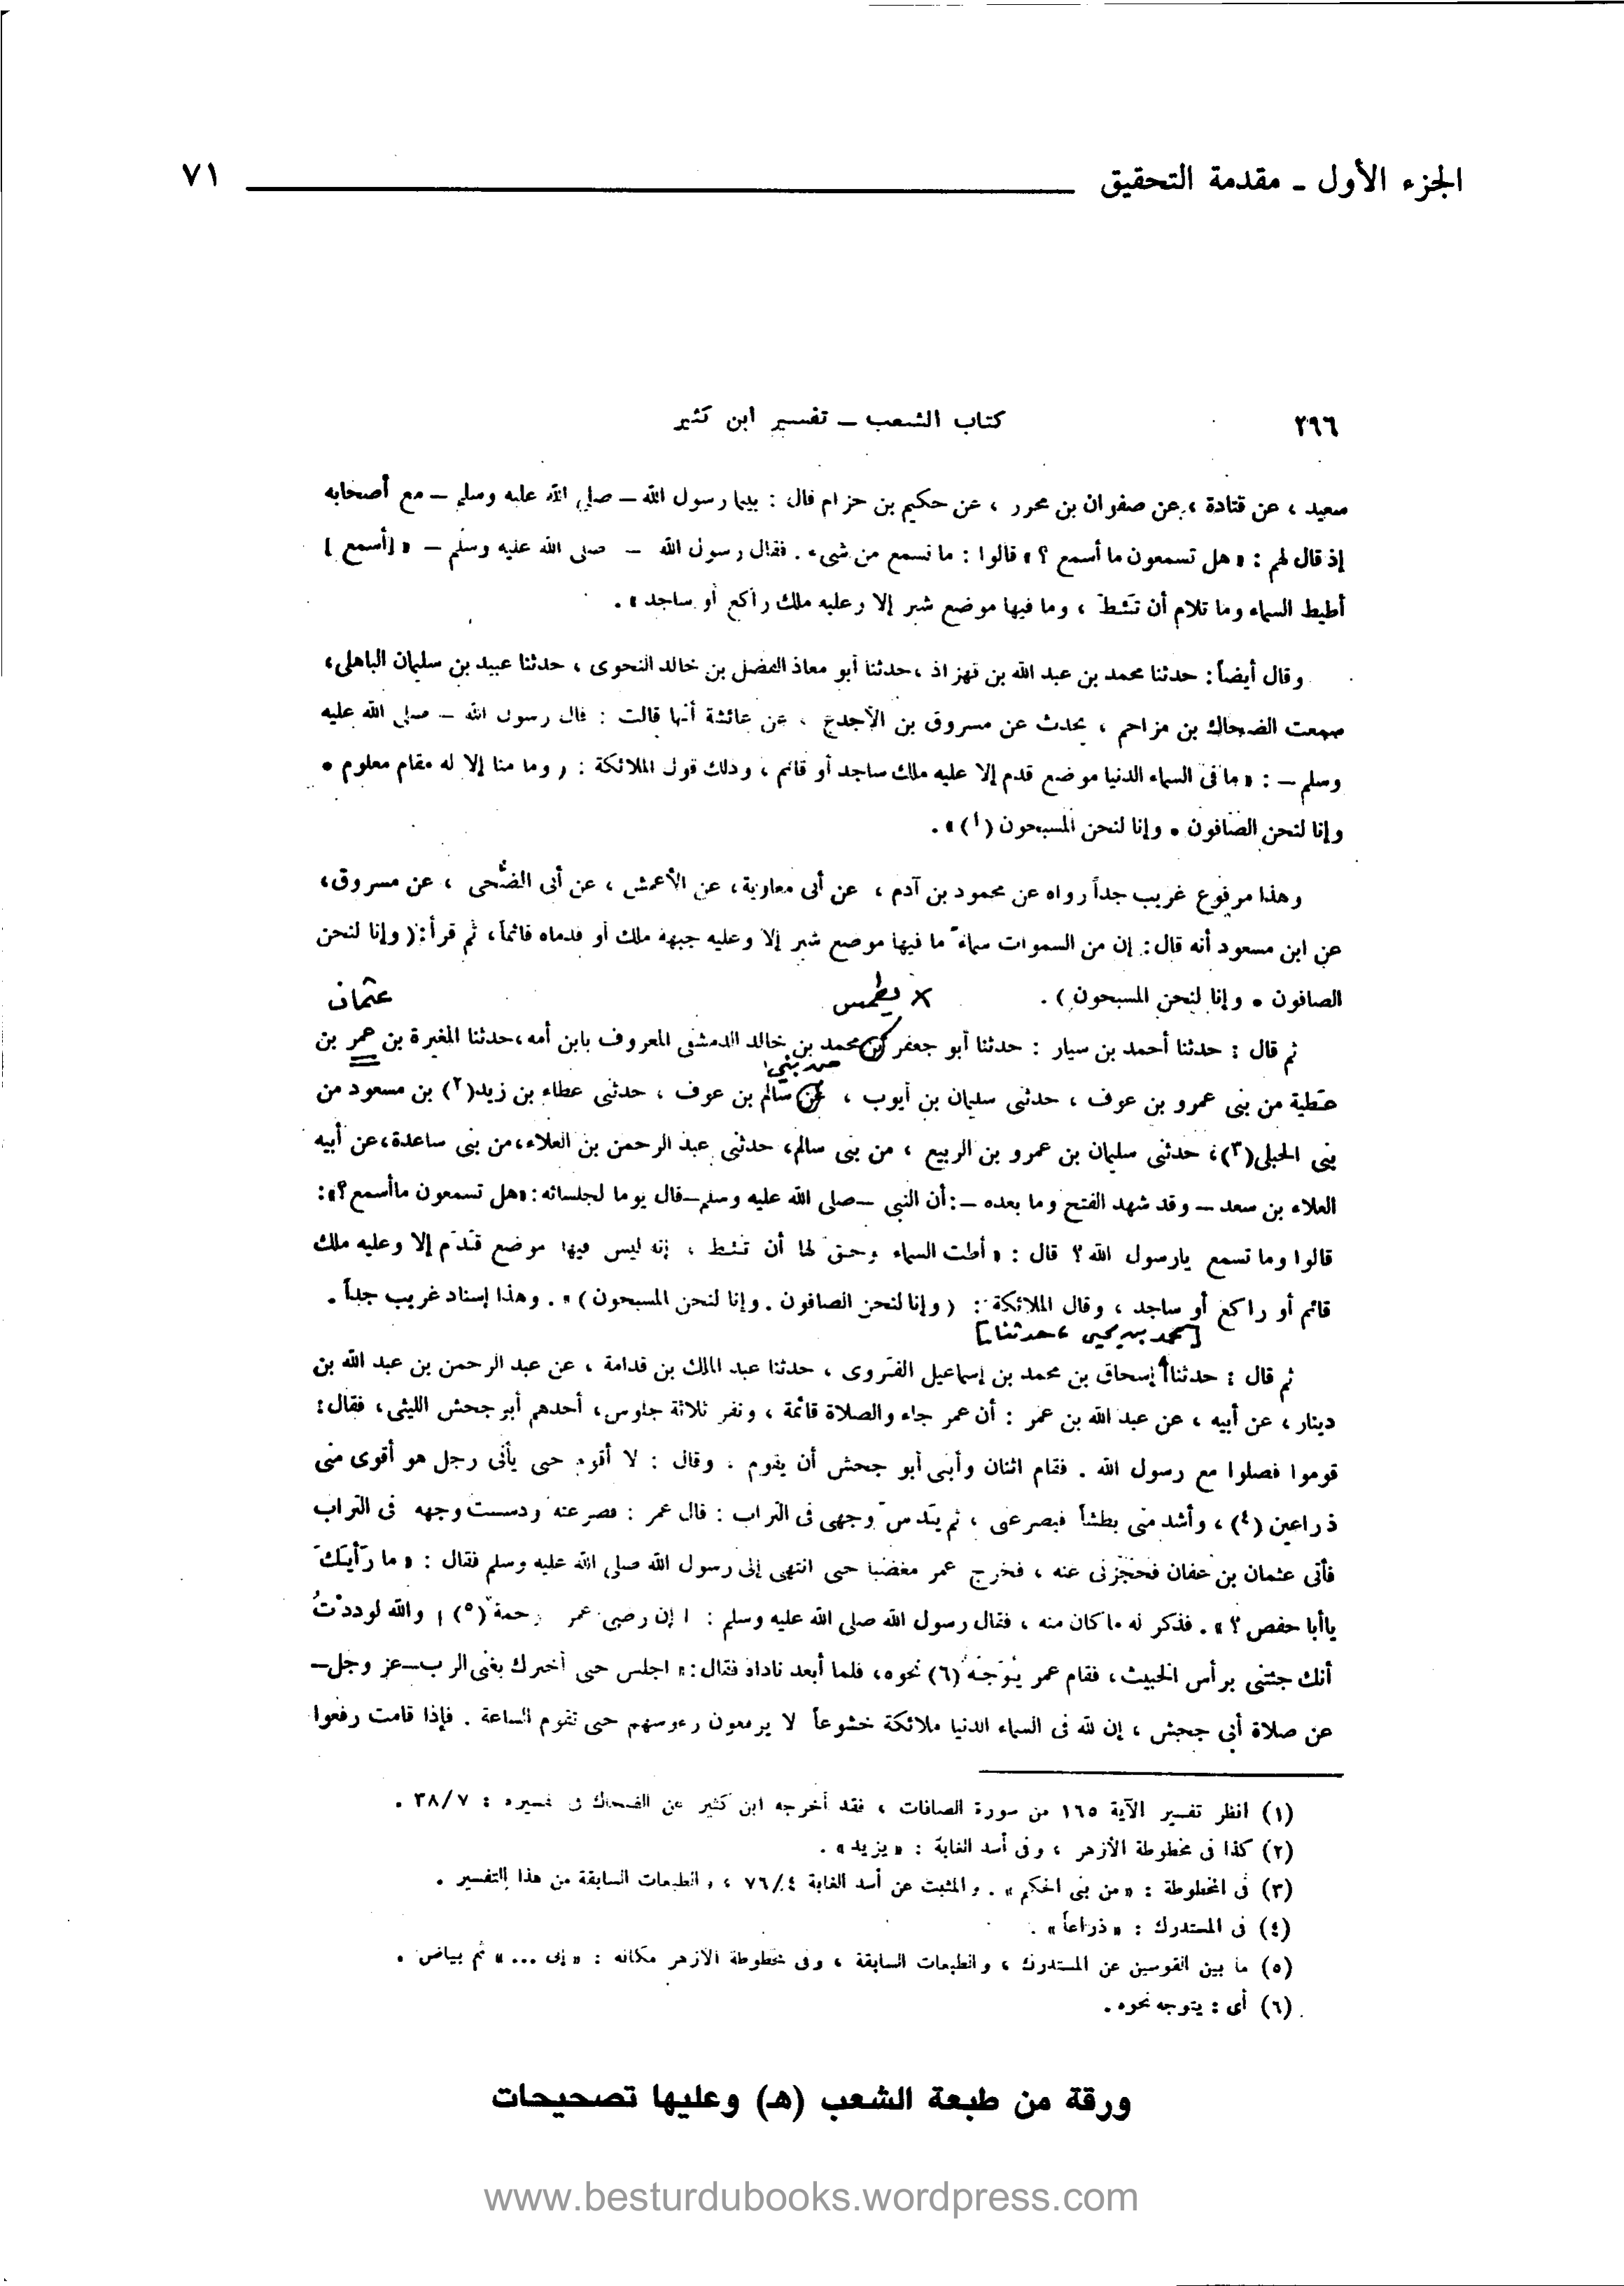 الجزء الأول ـ مقدمة التحقيق ٧١
٢٩٦ كتاب الشعب ــ تفسير ابن كثير
سعيد ، عن قتادة ، عن صفوان بن محرر ، عن حكيم بن حزام قال : بينما رسول الله – صلى الله عليه وسلم – مع أصحابه
إذ قال لهم : « هل تسمعون ما أسمع ؟ » قالوا : ما نسمع من شىء . فقال رسول الله – صلى الله عليه وسلم – « [أسمع ]
أطيط السماء وما تلام أن تئط ، وما فيها موضع شبر إلا وعليه ملك راكع أو ساجد » .
وقال أيضاً : حدثنا محمد بن عبد الله بن قهزاذ ، حدثنا أبو معاذ الفضل بن خالد النحوى ، حدثنا عبيد بن سليمان الباهلى ،
سمعت الضحاك بن مزاحم ، يحدث عن مسروق بن الأجدع ، عن عائشة أنها قالت : قال رسول الله – صلى الله عليه
وسلم – : « ما فى السماء الدنيا موضع قدم إلا عليه ملك ساجد أو قائم ، وذلك قول الملائكة : ( وما منا إلا له مقام معلوم •
وإنا لنحن الصافون • وإنا لنحن المسبحون (١) » .
وهذا مرفوع غريب جداً رواه عن محمود بن آدم ، عن أبى معاوية ، عن الأعمش ، عن أبى الضُّحى ، عن مسروق ،
عن ابن مسعود أنه قال : إن من السموات سماءً ما فيها موضع شبر إلا وعليه جبهة ملك أو قدماه قائماً ، ثم قرأ : ( وإنا لنحن
الصافون • وإنا لنحن المسبحون ) . × يطمس عثمان
ثم قال : حدثنا أحمد بن سيار : حدثنا أبو جعفر بن محمد بن خالد الدمشقى المعروف بابن أمه ، حدثنا المغيرة بن عمر بن
من بني
عطية من بنى عمرو بن عوف ، حدثنى سليمان بن أيوب ، عن سالم بن عوف ، حدثنى عطاء بن زيد(٢) بن مسعود من
بنى الحبلى(٣) ، حدثنى سليمان بن عمرو بن الربيع ، من بنى سالم ، حدثنى عبد الرحمن بن العلاء ، من بنى ساعدة ، عن أبيه
العلاء بن سعد – وقد شهد الفتح وما بعده – : أن النبي – صلى الله عليه وسلم – قال يوما لجلسائه : « هل تسمعون ما أسمع ؟ » :
قالوا وما تسمع يا رسول الله ؟ قال : « أطت السماء وحق لها أن تئط ، إنه ليس فيها موضع قدم إلا وعليه ملك
قائم أو راكع أو ساجد ، وقال الملائكة : ( وإنا لنحن الصافون . وإنا لنحن المسبحون ) » . وهذا إسناد غريب جداً .
[محمد بن يحيى ، حدثنا]
ثم قال : حدثنا إسحاق بن محمد بن إسماعيل الفروى ، حدثنا عبد الملك بن قدامة ، عن عبد الرحمن بن عبد الله بن
دينار ، عن أبيه ، عن عبد الله بن عمر : أن عمر جاء والصلاة قائمة ، ونفر ثلاثة جلوس ، أحدهم أبو جحش الليثى ، فقال :
قوموا فصلوا مع رسول الله . فقام اثنان وأبى أبو جحش أن يقوم ، وقال : لا أقوم حتى يأتى رجل هو أقوى منى
ذراعين (٤) ، وأشد منى بطشاً فيصرعنى ، ثم يدس وجهى فى التراب : قال عمر : فصرعته ودسست وجهه فى التراب
فأتى عثمان بن عفان فحجزنى عنه ، فخرج عمر مغضبا حتى انتهى إلى رسول الله صلى الله عليه وسلم فقال : « ما رأيك
ياأبا حفص ؟ » . فذكر له ما كان منه ، فقال رسول الله صلى الله عليه وسلم : ( إن رضى عمر رحمة (٥) ) والله لوددْتُ
أنك جئتنى برأس الخبيث ، فقام عمر يُوَجِّه (٦) نحوه ، فلما أبعد ناداه فقال : « اجلس حتى أخبرك بغنى الرب – عز وجل –
عن صلاة أبى جحش ، إن لله فى السماء الدنيا ملائكة خشوعاً لا يرفعون رءوسهم حتى تقوم الساعة . فإذا قامت رفعوا
(١) انظر تفسير الآية ١٦٥ من سورة الصافات ، فقد أخرجه ابن كثير عن الضحاك فى تفسيره : ٣٨/٧ .
(٢) كذا فى مخطوطة الأزهر ، وفى أسد الغابة : « يزيد » .
(٣) فى المخطوطة : « من بنى الحكم » . والمثبت عن أسد الغابة ٧٦/٤ ، والطبعات السابقة من هذا التفسير .
(٤) فى المستدرك : « ذراعاً » .
(٥) ما بين القوسين عن المستدرك ، والطبعات السابقة ، وفى مخطوطة الأزهر مكانه : « إلى ... » ثم بياض .
(٦) أى : يتوجه نحوه .
ورقة من طبعة الشعب (هـ) وعليها تصحيحات
www.besturdubooks.wordpress.com